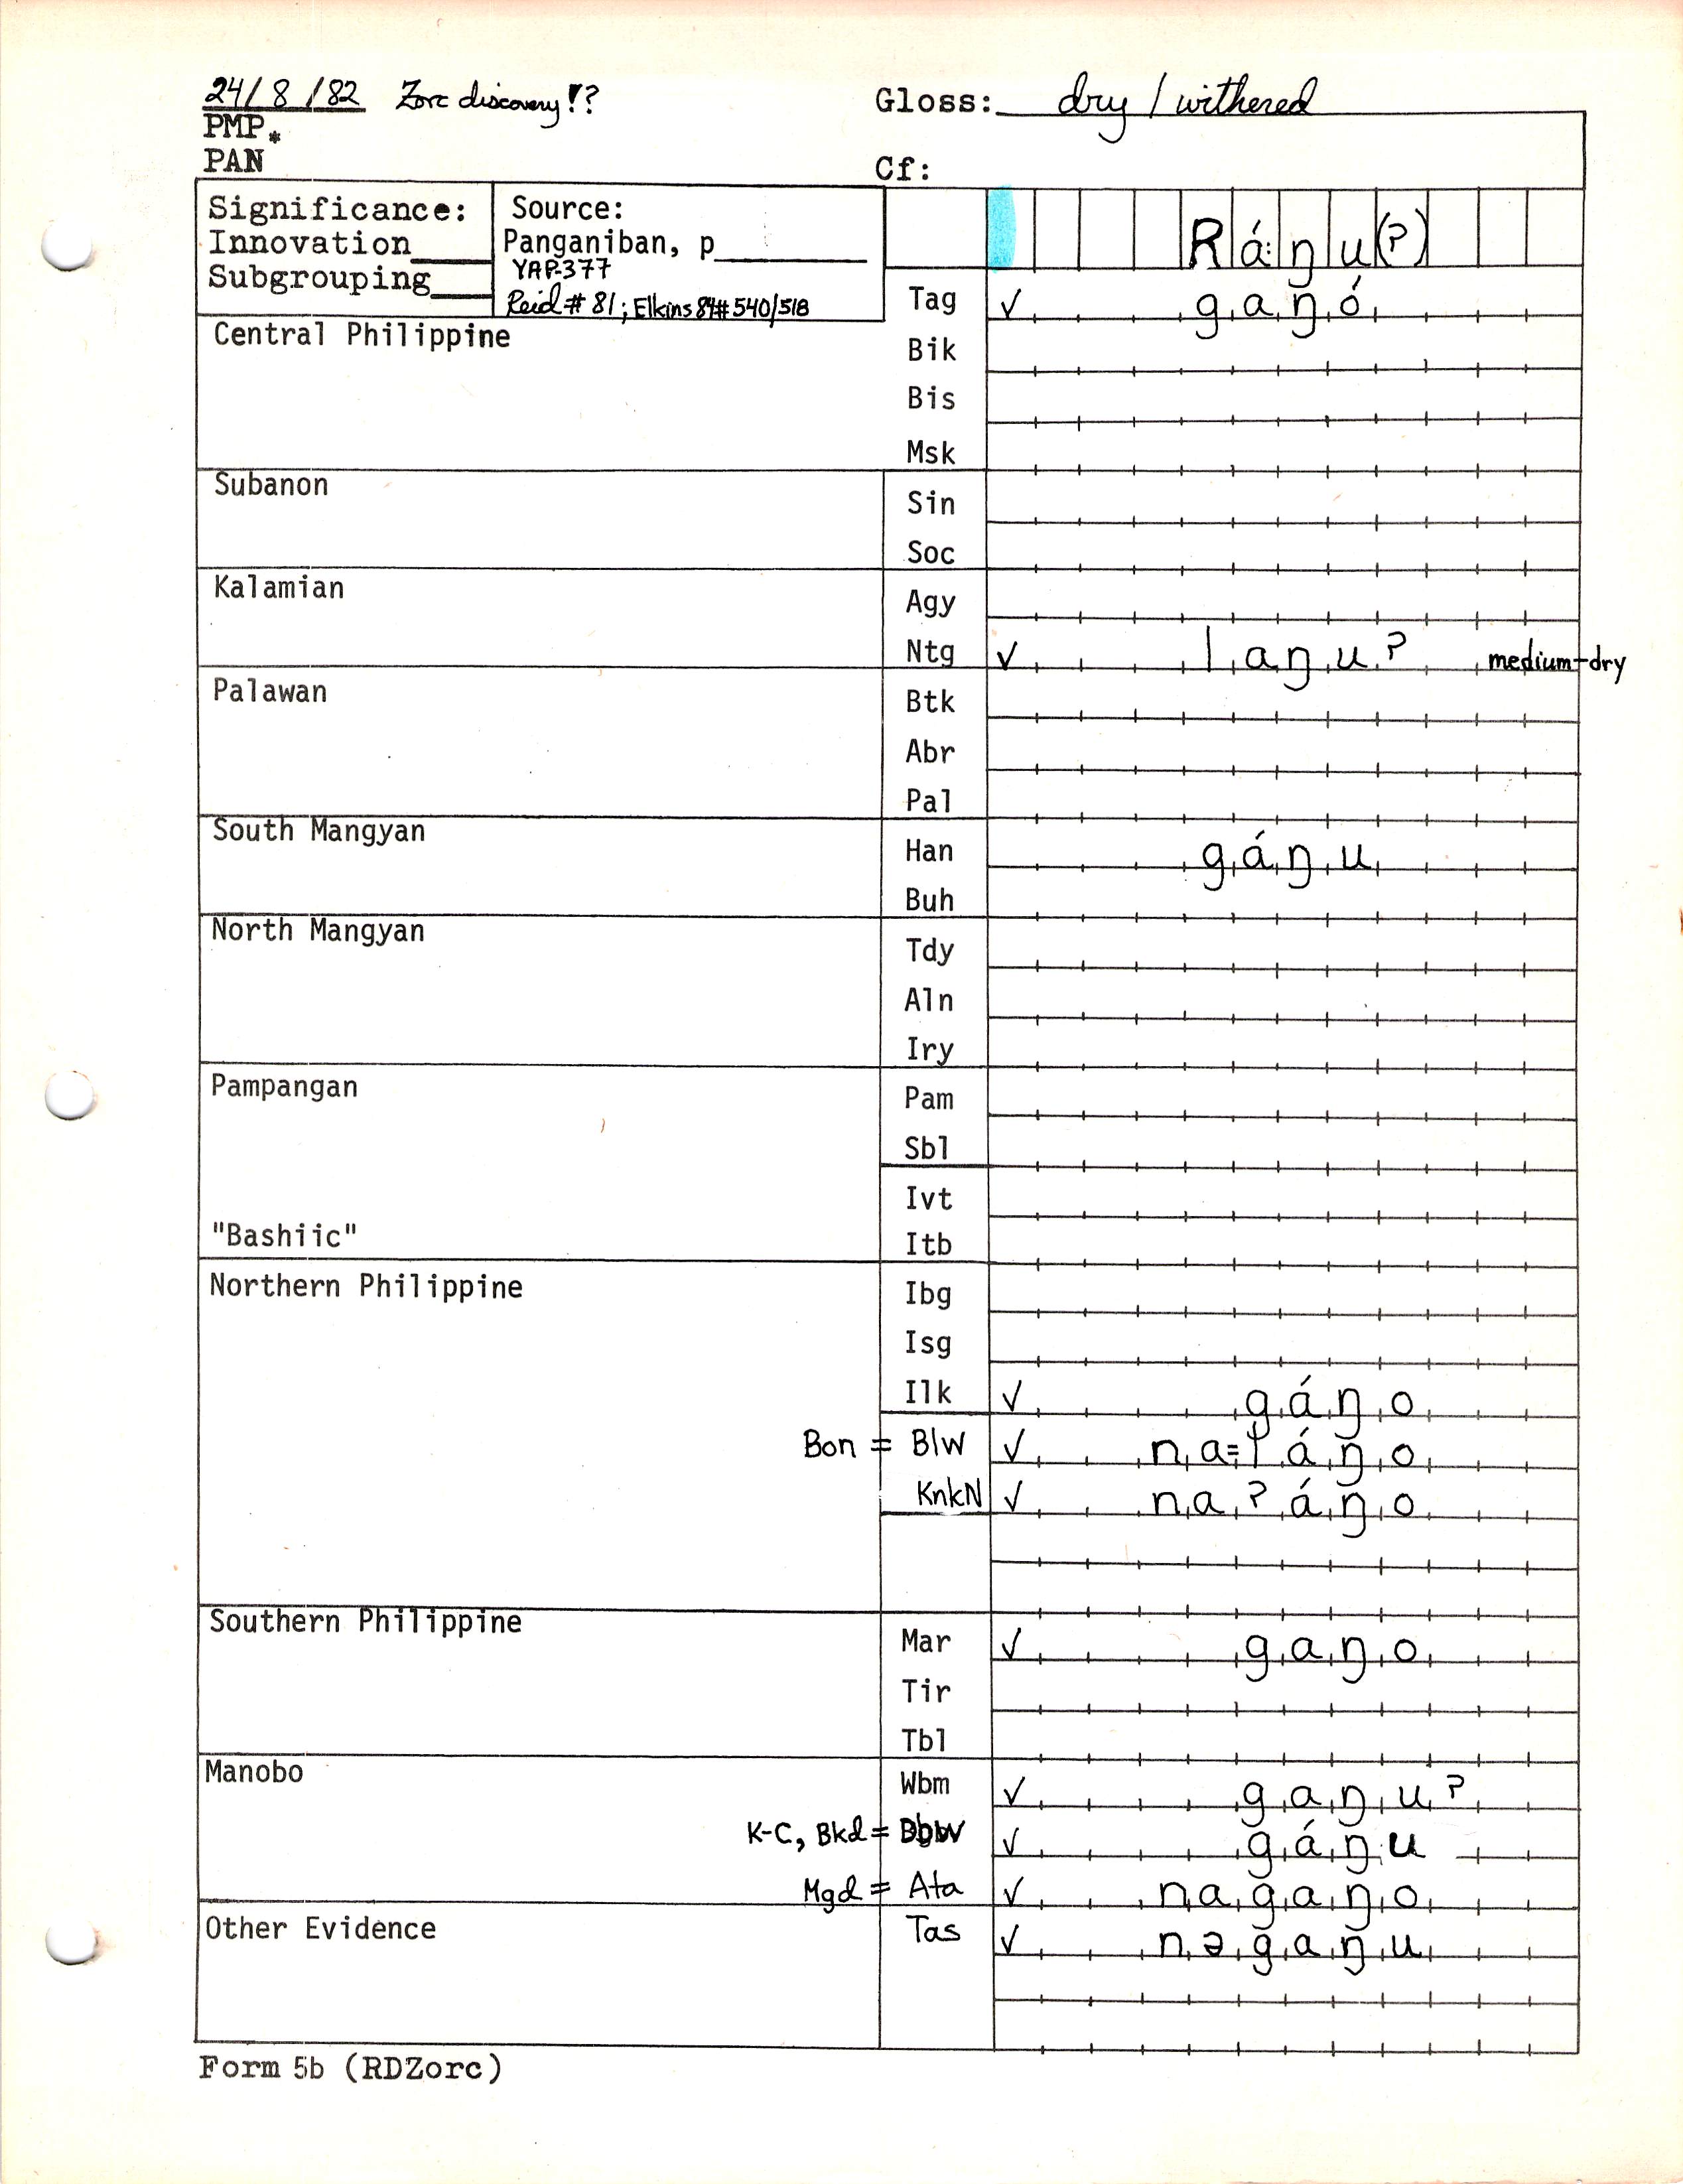 24/8/82 Zorc discovery!? Gloss: dry / withered
PMP *
PAN Cf:
Significance: Source:
Innovation____ Panganiban, p________
Subgrouping___ YAP-377
Reid # 81; Elkins 84# 540/518
Rá:ŋu(ʔ)
Tag ✓ gaŋó
Central Philippine
Bik
Bis
Msk
Subanon
Sin
Soc
Kalamian
Agy
Ntg ✓ laŋuʔ medium-dry
Palawan
Btk
Abr
Pal
South Mangyan
Han gáŋu
Buh
North Mangyan
Tdy
Aln
Iry
Pampangan
Pam
Sbl
Ivt
"Bashiic" Itb
Northern Philippine
Ibg
Isg
Ilk ✓ gáŋo
Bon = Blw ✓ na=ʔáŋo
KnkN ✓ naʔáŋo
Southern Philippine
Mar ✓ gaŋo
Tir
Tbl
Manobo
Wbm ✓ gaŋuʔ
K-C, Bkd = ✓ gáŋu
Mgd = Ata ✓ nagaŋo
Other Evidence
Tas ✓ nəgaŋu
Form 5b (RDZorc)